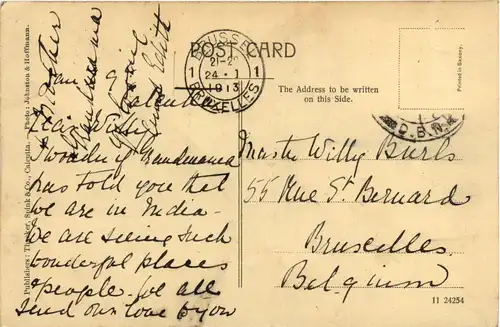 POST CARD
The Address to be written
on this Side.
Printed in Saxony.
BRUSSEL
21-2
24 · 1
1 1
1913
BRUXELLES
D.B.N.
Publishers: Thacker, Spink & Co., Calcutta. Photo: Johnston & Hoffmann.
11 24254
Calcutta
Dear Willy
I wonder if Grandmama
has told you that
we are in India -
We are seeing such
wonderful places
& people. We all
send our love to you
Grandmama
Aunt Edith
Master Willy Burls
55 Rue St Bernard
Bruxelles
Belgium